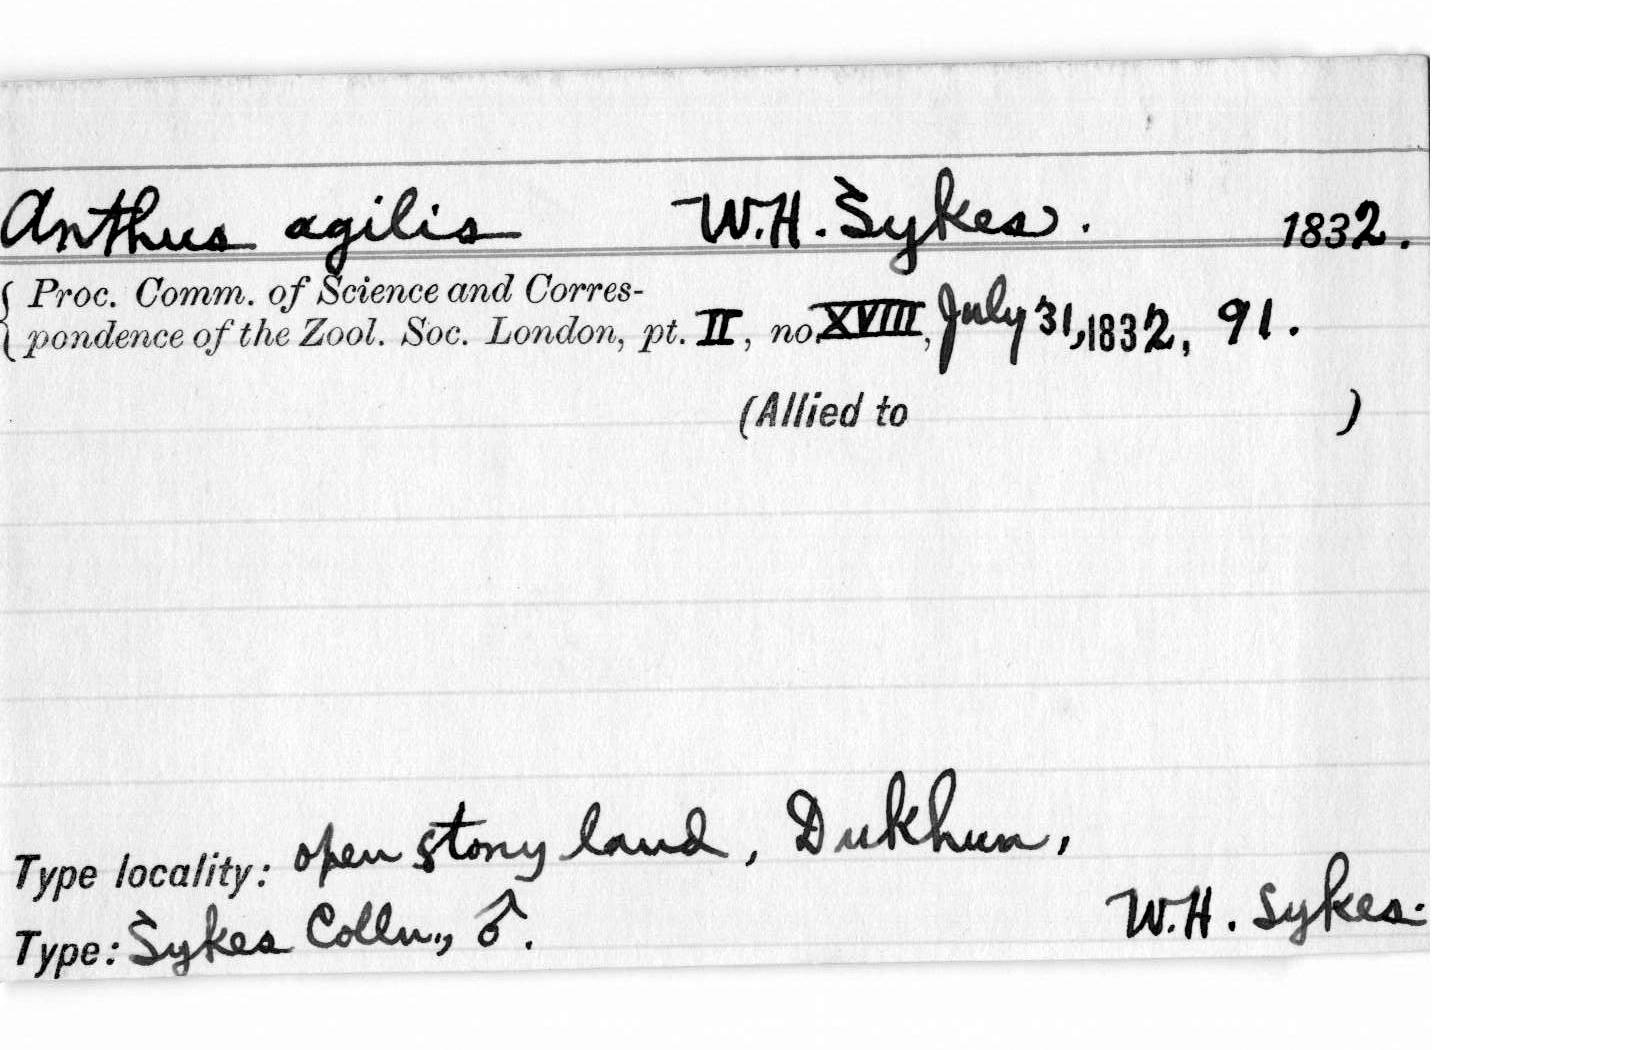 Anthus agilis W.H. Sykes. 1832.
{ Proc. Comm. of Science and Corres-
pondence of the Zool. Soc. London, pt. II, no. XVIII, July 31, 1832, 91.
(Allied to )
Type locality: open stony land, Dukhun,
Type: Sykes Colln., ♂. W.H. Sykes.